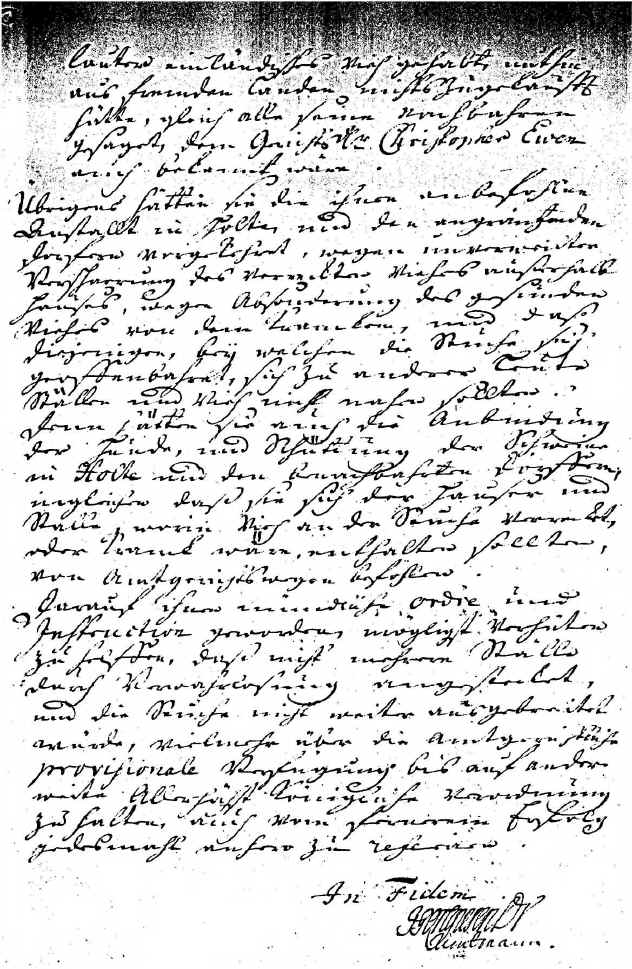 lauter einländisches Vieh gehabt, mithin
aus fremden Landen nichts zugekaufft
hätte, gleich alle seine Nachbahren
gesaget, dem Christopher Ewen
auch bekannt wäre.
Übrigens hätten sie die ihnen anbefohlene
Anstallt in Holte und den angräntzenden
Dörfern vorgekehret, wegen
Verscharrung des verreckten Viehes ausserhalb
Hauses, wegen Absonderung des gesunden
Viehes von dem krancken, und daß
diejenigen, bey welchen die Seuche sich
geoffenbahret, sich zu anderer Leute
Ställen und Vieh nicht nahen sollten.
Denn hätten sie auch die Anbindung
der Hunde, und Schüttung der Schweine
in Holte und den benachbahrten Dörffern,
ingleichen daß sie sich der Häuser und
Ställe, worin Vieh an der Seuche verrecket,
oder kranck wäre, enthalten sollten,
von Amtgerichtswegen befohlen.
Darauf ihnen mündliche ordre und
Instruction geworden, mögligst verhüten
zu helffen, daß nicht mehrere Ställe
durch Verwahrlosung angestecket,
und die Seuche nicht weiter ausgebreitet
würde, vielmehr über die Amtgerichtliche
provisionale Verfügung bis auf ander-
weite Allerhöchst Königliche Verordnung
zu halten, auch vom ferneren Erfolg
jedesmahl anhero zu referiren.
In Fidem
Amtmann.